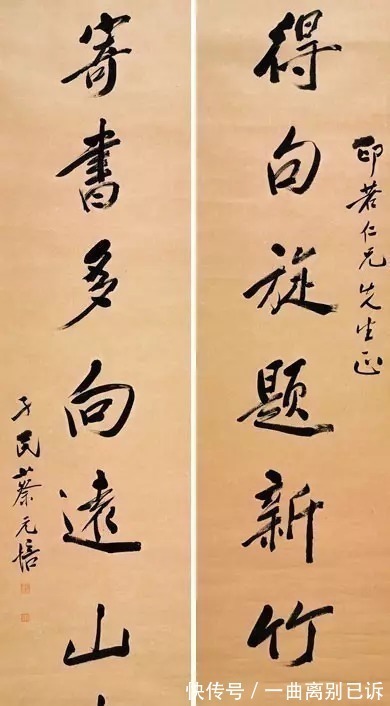 印若仁兄先生正
得句旋題新竹
寄書多向遠山
孑民蔡元培
快传号/一曲离别已诉